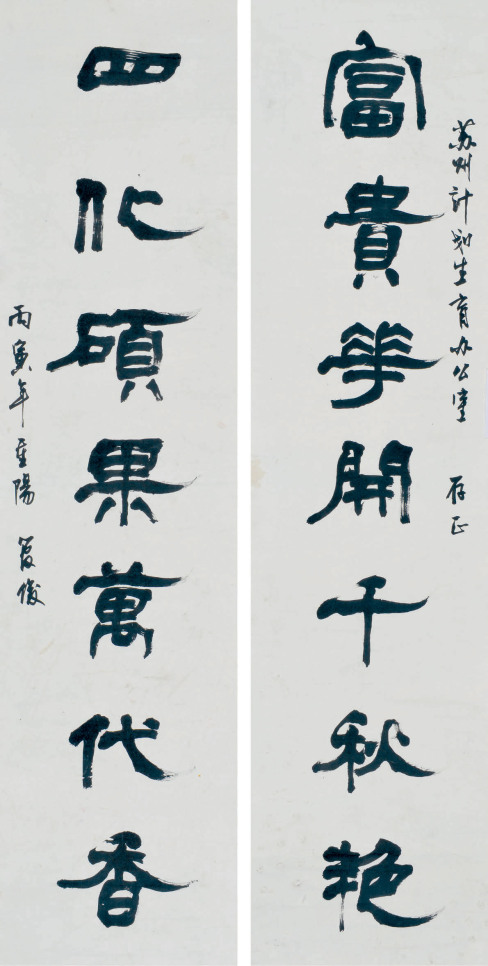 苏州计划生育办公室 存正
富貴華開千秋艳
四化碩果萬代香
丙寅年重陽